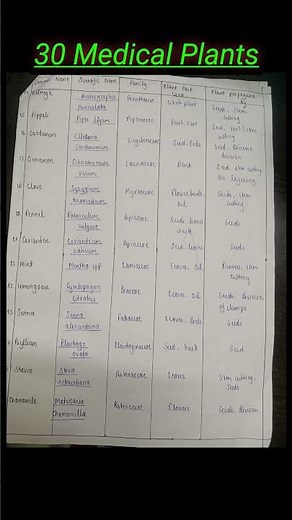 30 Medical Plants
Common Name Scientific Name Family Plant Part Used Plant propagation by
Andrographis paniculata Acanthaceae Whole plant Seeds, Stem cutting
Pippli Piper longum Piperaceae Fruit, root Seed, root, stem cutting
Cardamom Elletaria Cardamomum Zingiberaceae Seed, Pods Seed, Rhizome division
Cinnamon Cinnamomum verum Lauraceae Bark Seed, stem cutting
Clove Syzygium aromaticum Myrtaceae Flower buds, oil Seeds, stem cutting
Fennel Foeniculum vulgare Apiaceae Seeds, leaves Seeds
Coriander Coriandrum sativum Apiaceae Seed, leaves Seeds
Mint Mentha spp Lamiaceae Leaves, Oil Runners, stem cutting
Lemongrass Cymbopogon citratus Poaceae Leaves, Oil Seeds, division of clumps
Senna Senna alexandrina Fabaceae Leaves, Pods Seeds
Psyllium Plantago ovata Plantaginaceae Seed, husk Seed
Stevia Stevia rebaudiana Asteraceae Leaves Stem cutting, Seeds
Chamomile Matricaria Chamomilla Asteraceae Flowers Seeds, division